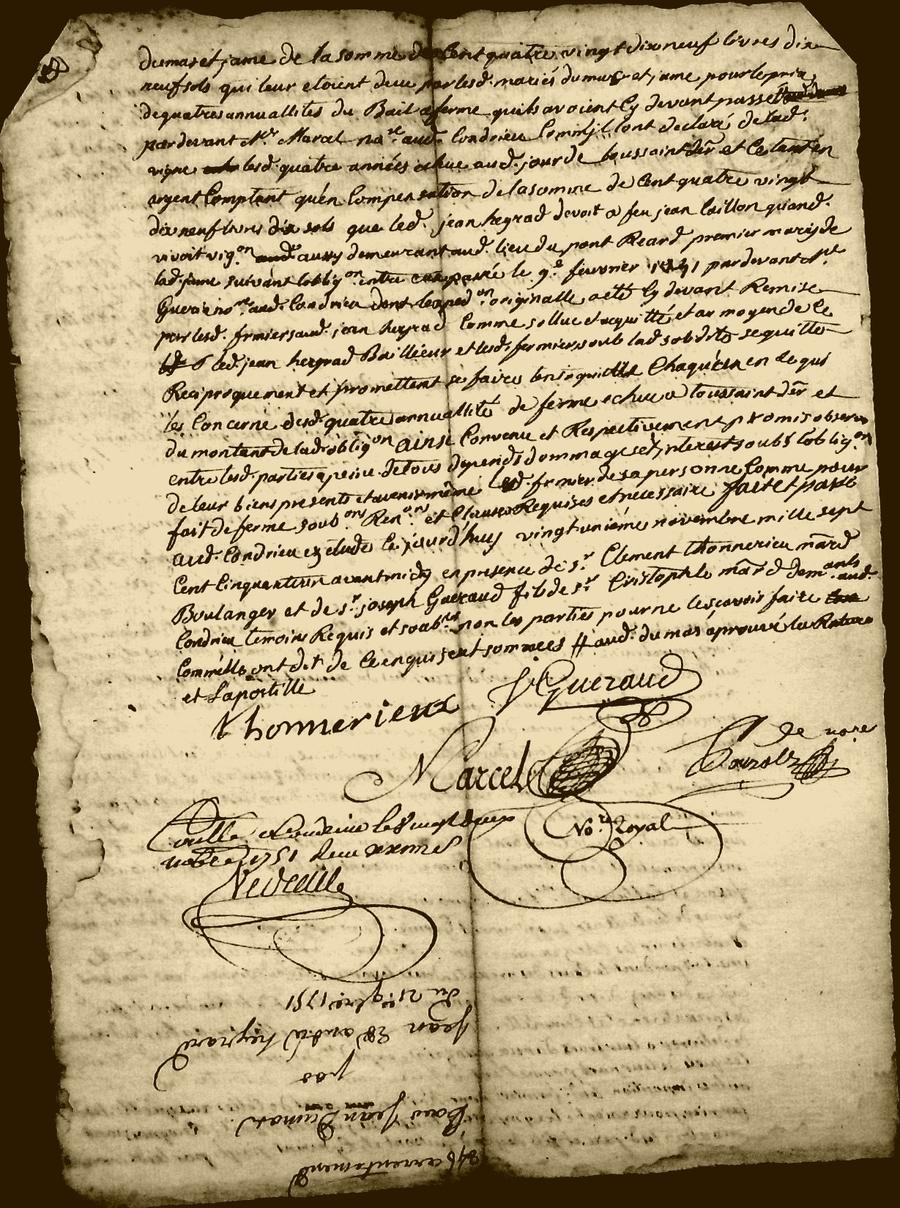 dumas et jame de la somme de Cent quatre vingt dix neuf livres dix
neuf sols qui leur etoient deue par lesd. mariés dumas et jame pour le prix
de quatres annuallités du Bail a ferme quils avoient Cy devant passé
pardevant Mr. Marcel nore. aud. Condrieu Comm ils ont declaré de lad.
vigne lesd. quatre années echue aud. jour de toussaint der. et Ce tant en
argent Comptant qu'en Compensation de la somme de Cent quatre vingt
dix neuf livres dix sols que led. jean hegrad devoit a feu jean Caillon quand.
vivoit vigon. aussy demeurant aud. lieu du pont Reard premier maris de
lad. jame suivant lobligon. entre eux passé le 9e. fevrier 1741 pardevant Me
Guerin nore. aud. Condrieu dont lexpedon. originalle a eté Cy devant Remise
par lesd. fermiers aud. jean hegrad Comme sollue et acquitté et au moyen de Ce
led. jean hegrad Bailleur et lesd. fermiers soub lad. solidité se quitte
Reciproquement et promettent se faire tenir quitte Chaquun en Ce qui
les Concerne desd. quatre annuallité de ferme echue a toussaint der. et
du montant de lad. obligon. ainsi Convenu et Respectivement promis observer
entre lesd. parties a peine de tous depends dommages et interests soubs lobligon
de leur biens presents et avenir même led. fermier de sa personne Comme pour
fait de ferme soubon. Renon. et Clauses Requises et necessaire fait et passé
aud. Condrieu etude Ce jourd'huy vingt unieme novembre mille sept
Cent Cinquante un avant midy en presence de sr. Clement thonnerieu mard
Boulanger et de sr. joseph Gueraud fils de sr. Cristophle mard demants aud.
Condrieu temoins Requis et soubsnés non les parties pour ne le scavoir faire
Comm'elles ont dit de Ce enquis et sommées # aud. dumas aprouvé la Rature
et Lapostille
thonnerieux J Gueraud
Marcel
Nore Royal
Con.lle a Condrieu le vingt deux
nobre 1751 Reeu
du 21 9bre 1751
jean et andré hegrard
pour
jean dumas